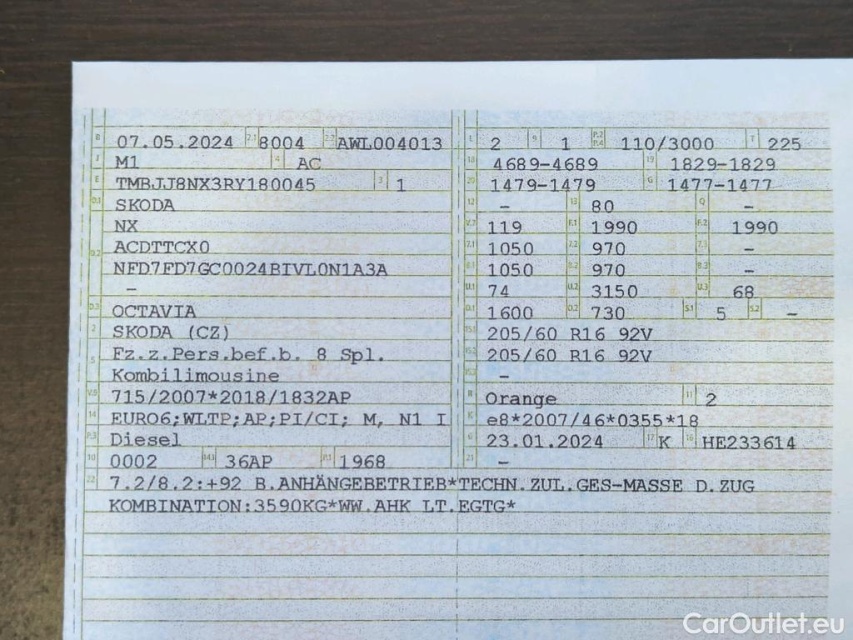 B 07.05.2024 2.1 8004 2.2 AWL004013
J M1 4 AC
E TMBJJ8NX3RY180045 3 1
D.1 SKODA
NX
D.2 ACDTTCX0
NFD7FD7GC0024BIVL0N1A3A
–
D.3 OCTAVIA
2 SKODA (CZ)
5 Fz.z.Pers.bef.b. 8 Spl.
Kombilimousine
V.9 715/2007*2018/1832AP
14 EURO6;WLTP;AP;PI/CI; M, N1 I
P.3 Diesel
10 0002 14.1 36AP P.1 1968
22 7.2/8.2:+92 B.ANHÄNGEBETRIEB*TECHN.ZUL.GES-MASSE D.ZUG
KOMBINATION:3590KG*WW.AHK LT.EGTG*
L 2 9 1 P.2 P.4 110/3000 T 225
18 4689-4689 19 1829-1829
20 1479-1479 G 1477-1477
12 – 13 80 Q –
V.7 119 F.1 1990 F.2 1990
7.1 1050 7.2 970 7.3 –
8.1 1050 8.2 970 8.3 –
U.1 74 U.2 3150 U.3 68
O.1 1600 O.2 730 S.1 5 S.2 –
15.1 205/60 R16 92V
15.2 205/60 R16 92V
15.3 –
R Orange 11 2
K e8*2007/46*0355*18
6 23.01.2024 17 K 16 HE233614
21 –
CarOutlet.eu